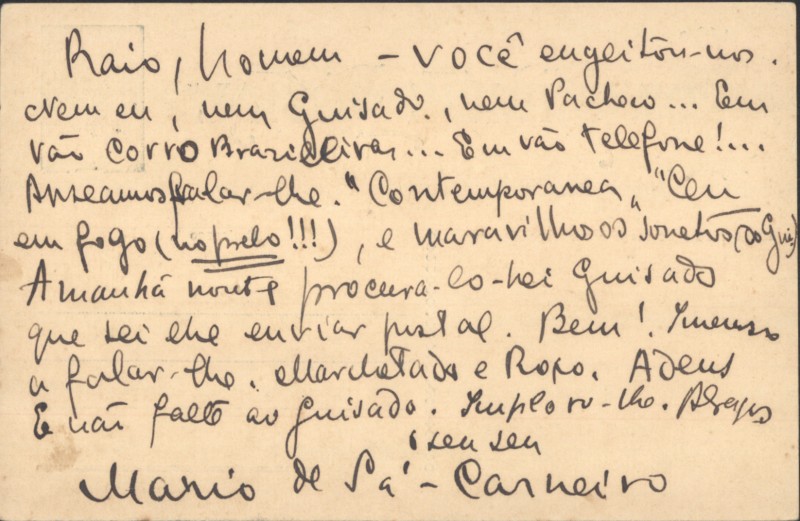 Raio, homem – VOCÊ engeitou-nos.
Nem eu, nem Guisado, nem Pacheco... Em
vão corro Brazileiras... Em vão telefone!...
Anseamos falar-lhe. "Contemporanea", "Ceu
em fogo (no prelo!!!), e maravilhosos sonetos (do Gui)
Amanhã noute procura-lo-hei Guisado
que sei lhe enviar postal. Bem! Imenso
a falar-lhe. Marchetado e Roxo. Adeus
E não falte ao Guisado. Imploro-lho. Abraços
seu seu
Mario de Sá-Carneiro